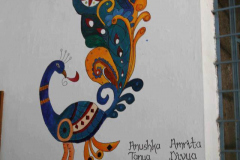 Anushka Amrita
Tanya Divya